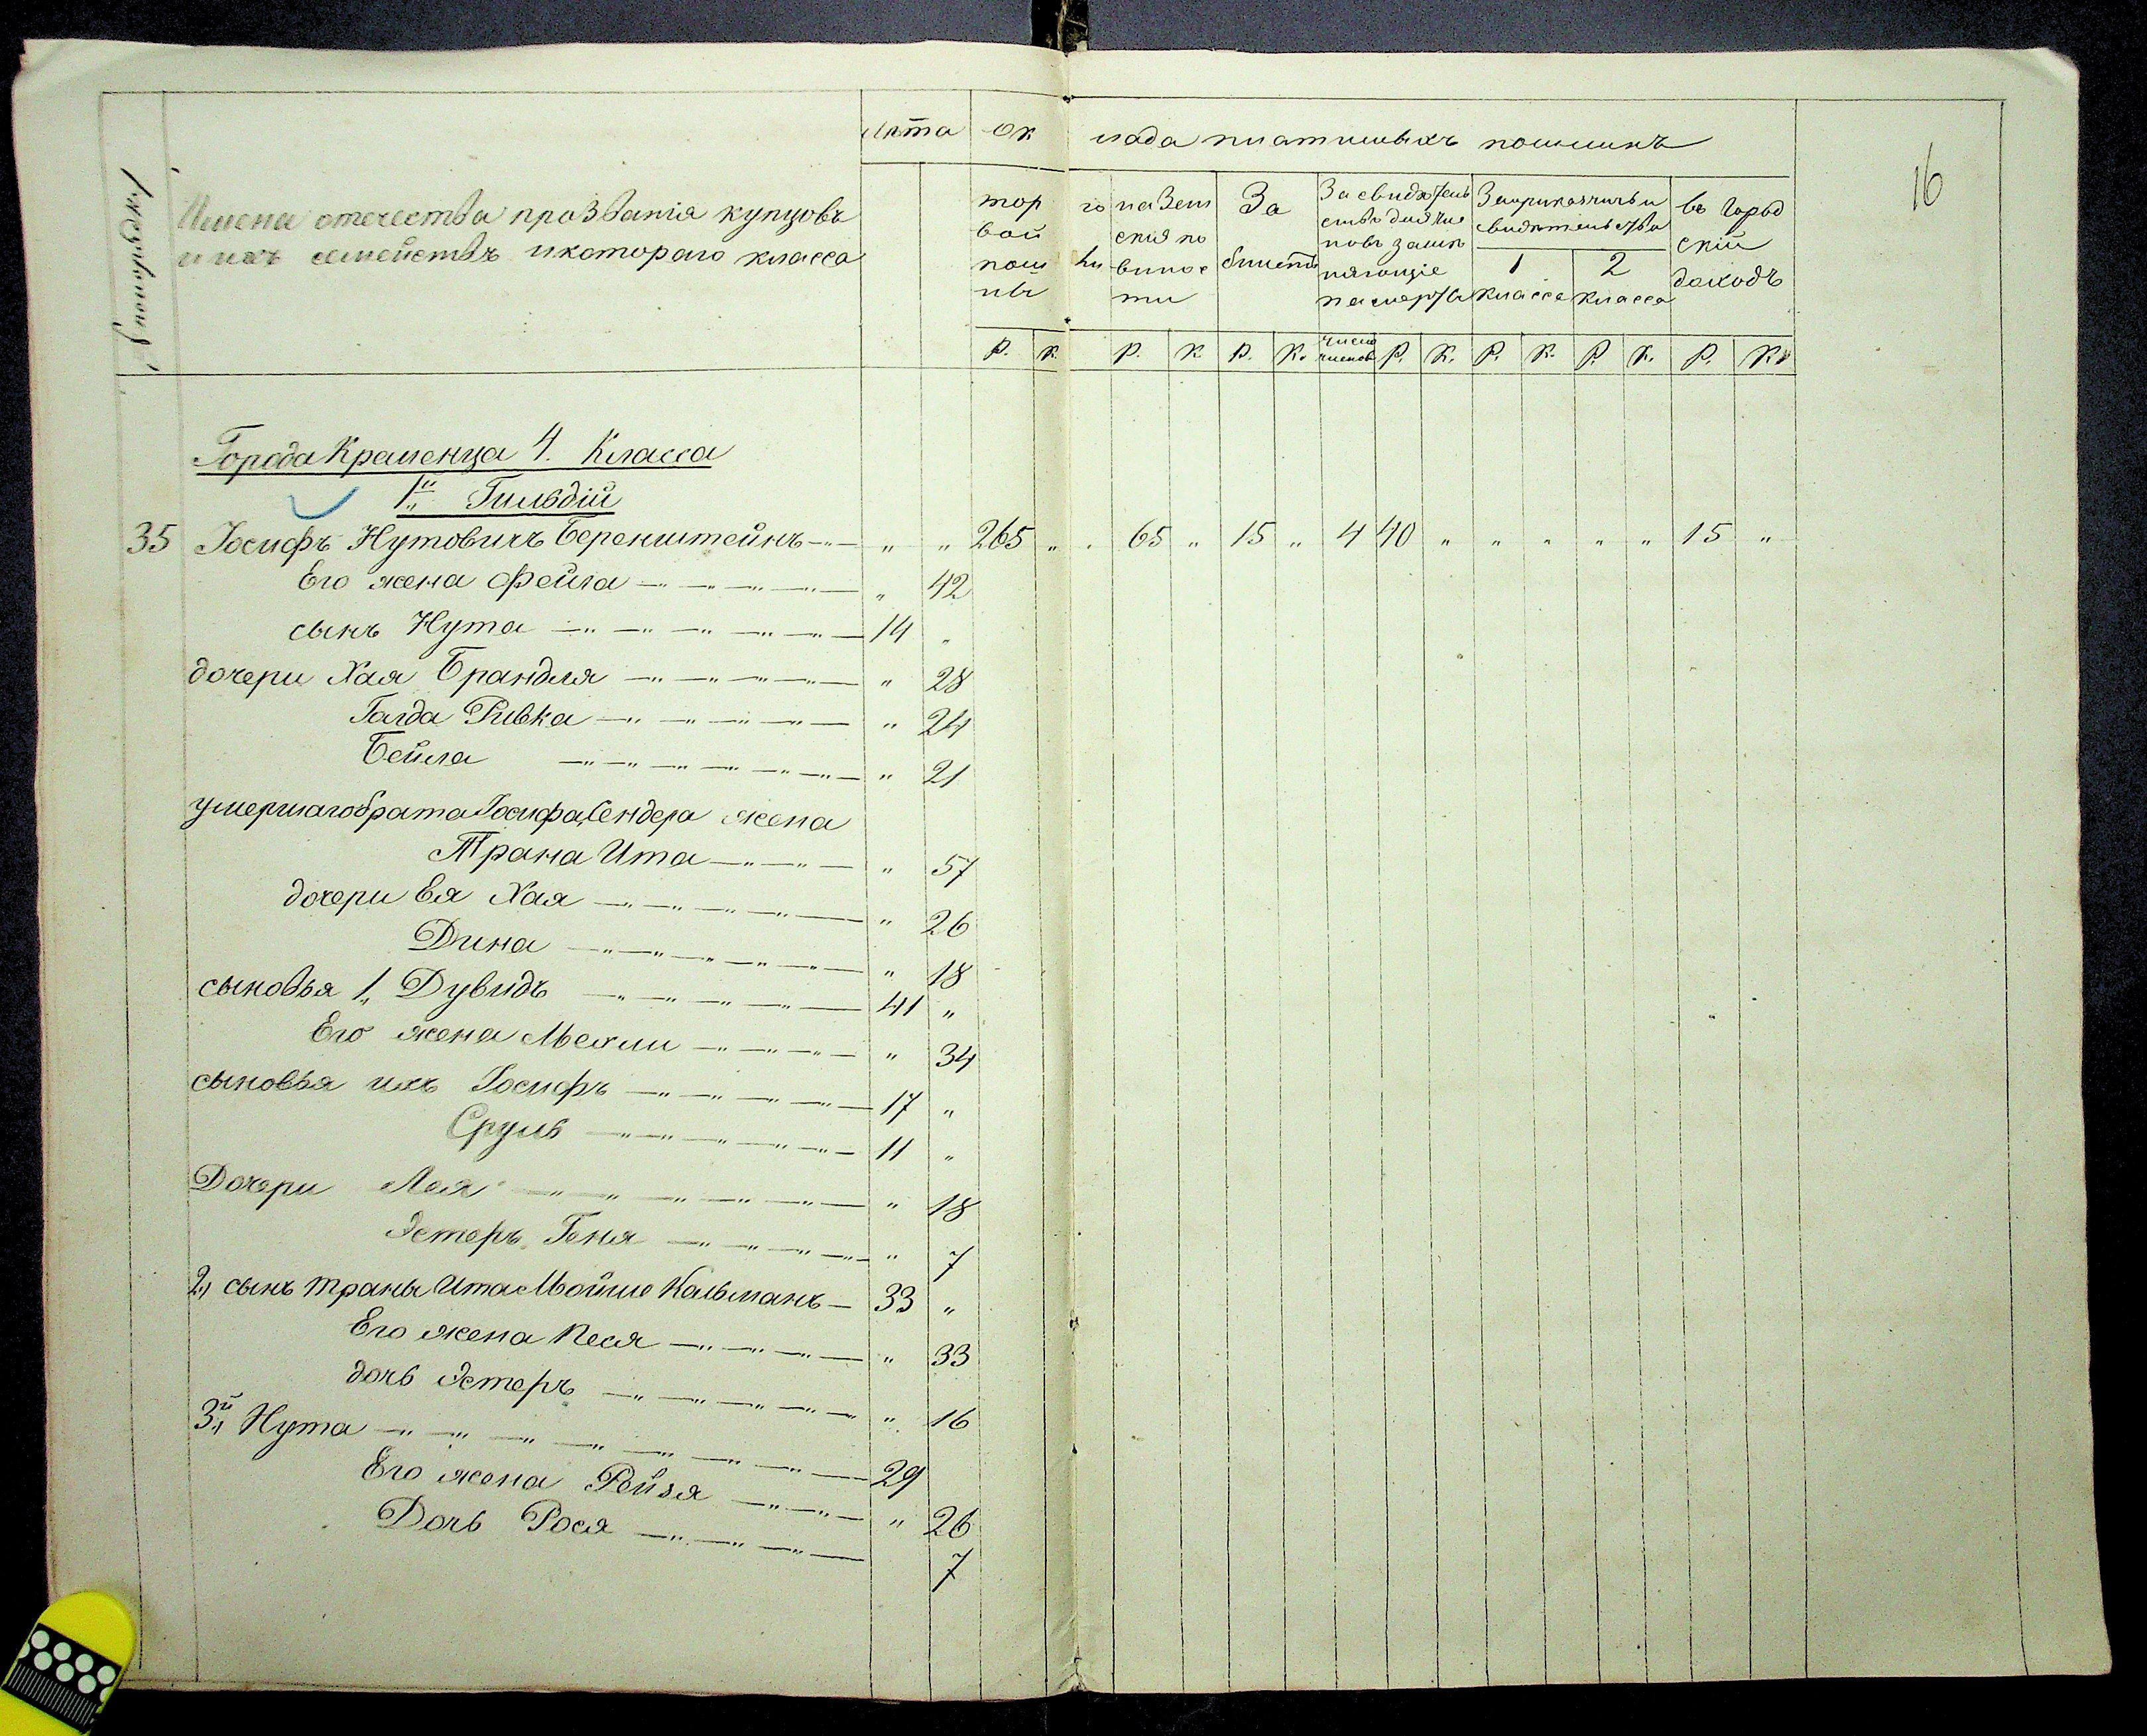 Лѣта Ок лада платимыхъ пошлинъ
16
№ по порядку
Имена отечества прозванія купцовъ
и ихъ семействъ и котораго класса
тор го
вой
пош ли
ны
на Зем
скія по
винос
ти
За
билетъ
За свидѣтель
ство для чле
новъ замѣ
няющіе
паспорты
За прикащичьи
свидѣтельства
1 класса
2 класса
въ Город
скій
доходъ
Р. К. Р. К. Р. К. число членов Р. К. Р. К. Р. К. Р. К.
Города Кременца 4. Класса
1й Гильдій
35 Іосифъ Нутовичъ Беренштейнъ „ „ 265 „ 65 „ 15 „ 4 40 „ „ „ „ „ 15 „
Его жена Фейга „ 42
сынъ Нута 14 „
дочери Хая Брандля „ 28
Голда Ривка „ 24
Бейла „ 21
умершаго брата Іосифа, Сендера жена
Трана Ита „ 57
дочери Ея Хая „ 26
Дина „ 18
сыновья 1„ Дувидъ 41 „
Его жена Мехли „ 34
сыновья ихъ Іосифъ 17 „
Сруль 11 „
Дочери Лея „ 18
Эстеръ Геня „ 7
2„ сынъ Траны Ита Мойше Кальманъ 33 „
Его жена Песя „ 33
дочь Эстеръ „ 16
3й„ Нута 29
Его жена Рейзя „ 26
Дочь Рося 7